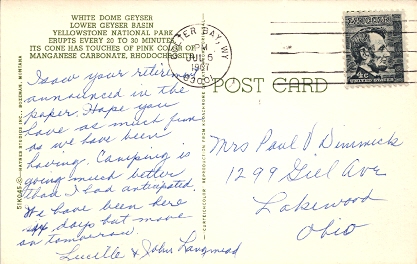 WHITE DOME GEYSER
LOWER GEYSER BASIN
YELLOWSTONE NATIONAL PARK
ERUPTS EVERY 20 TO 30 MINUTES
ITS CONE HAS TOUCHES OF PINK COLOR OF
MANGANESE CARBONATE, RHODOCHROSITE
I saw your retirement
announced in the
paper. Hope you
have as much fun
as we have been
having. Camping is
going much better
than I had anticipated.
We have been here
days but move
on tomorrow.
Lucille & John Langmead
BAY, WY
PM
JUL 5
POST CARD
4c
UNITED STATES
Mrs Paul V Dimmick
1299 Giel Ave
Lakewood
Ohio